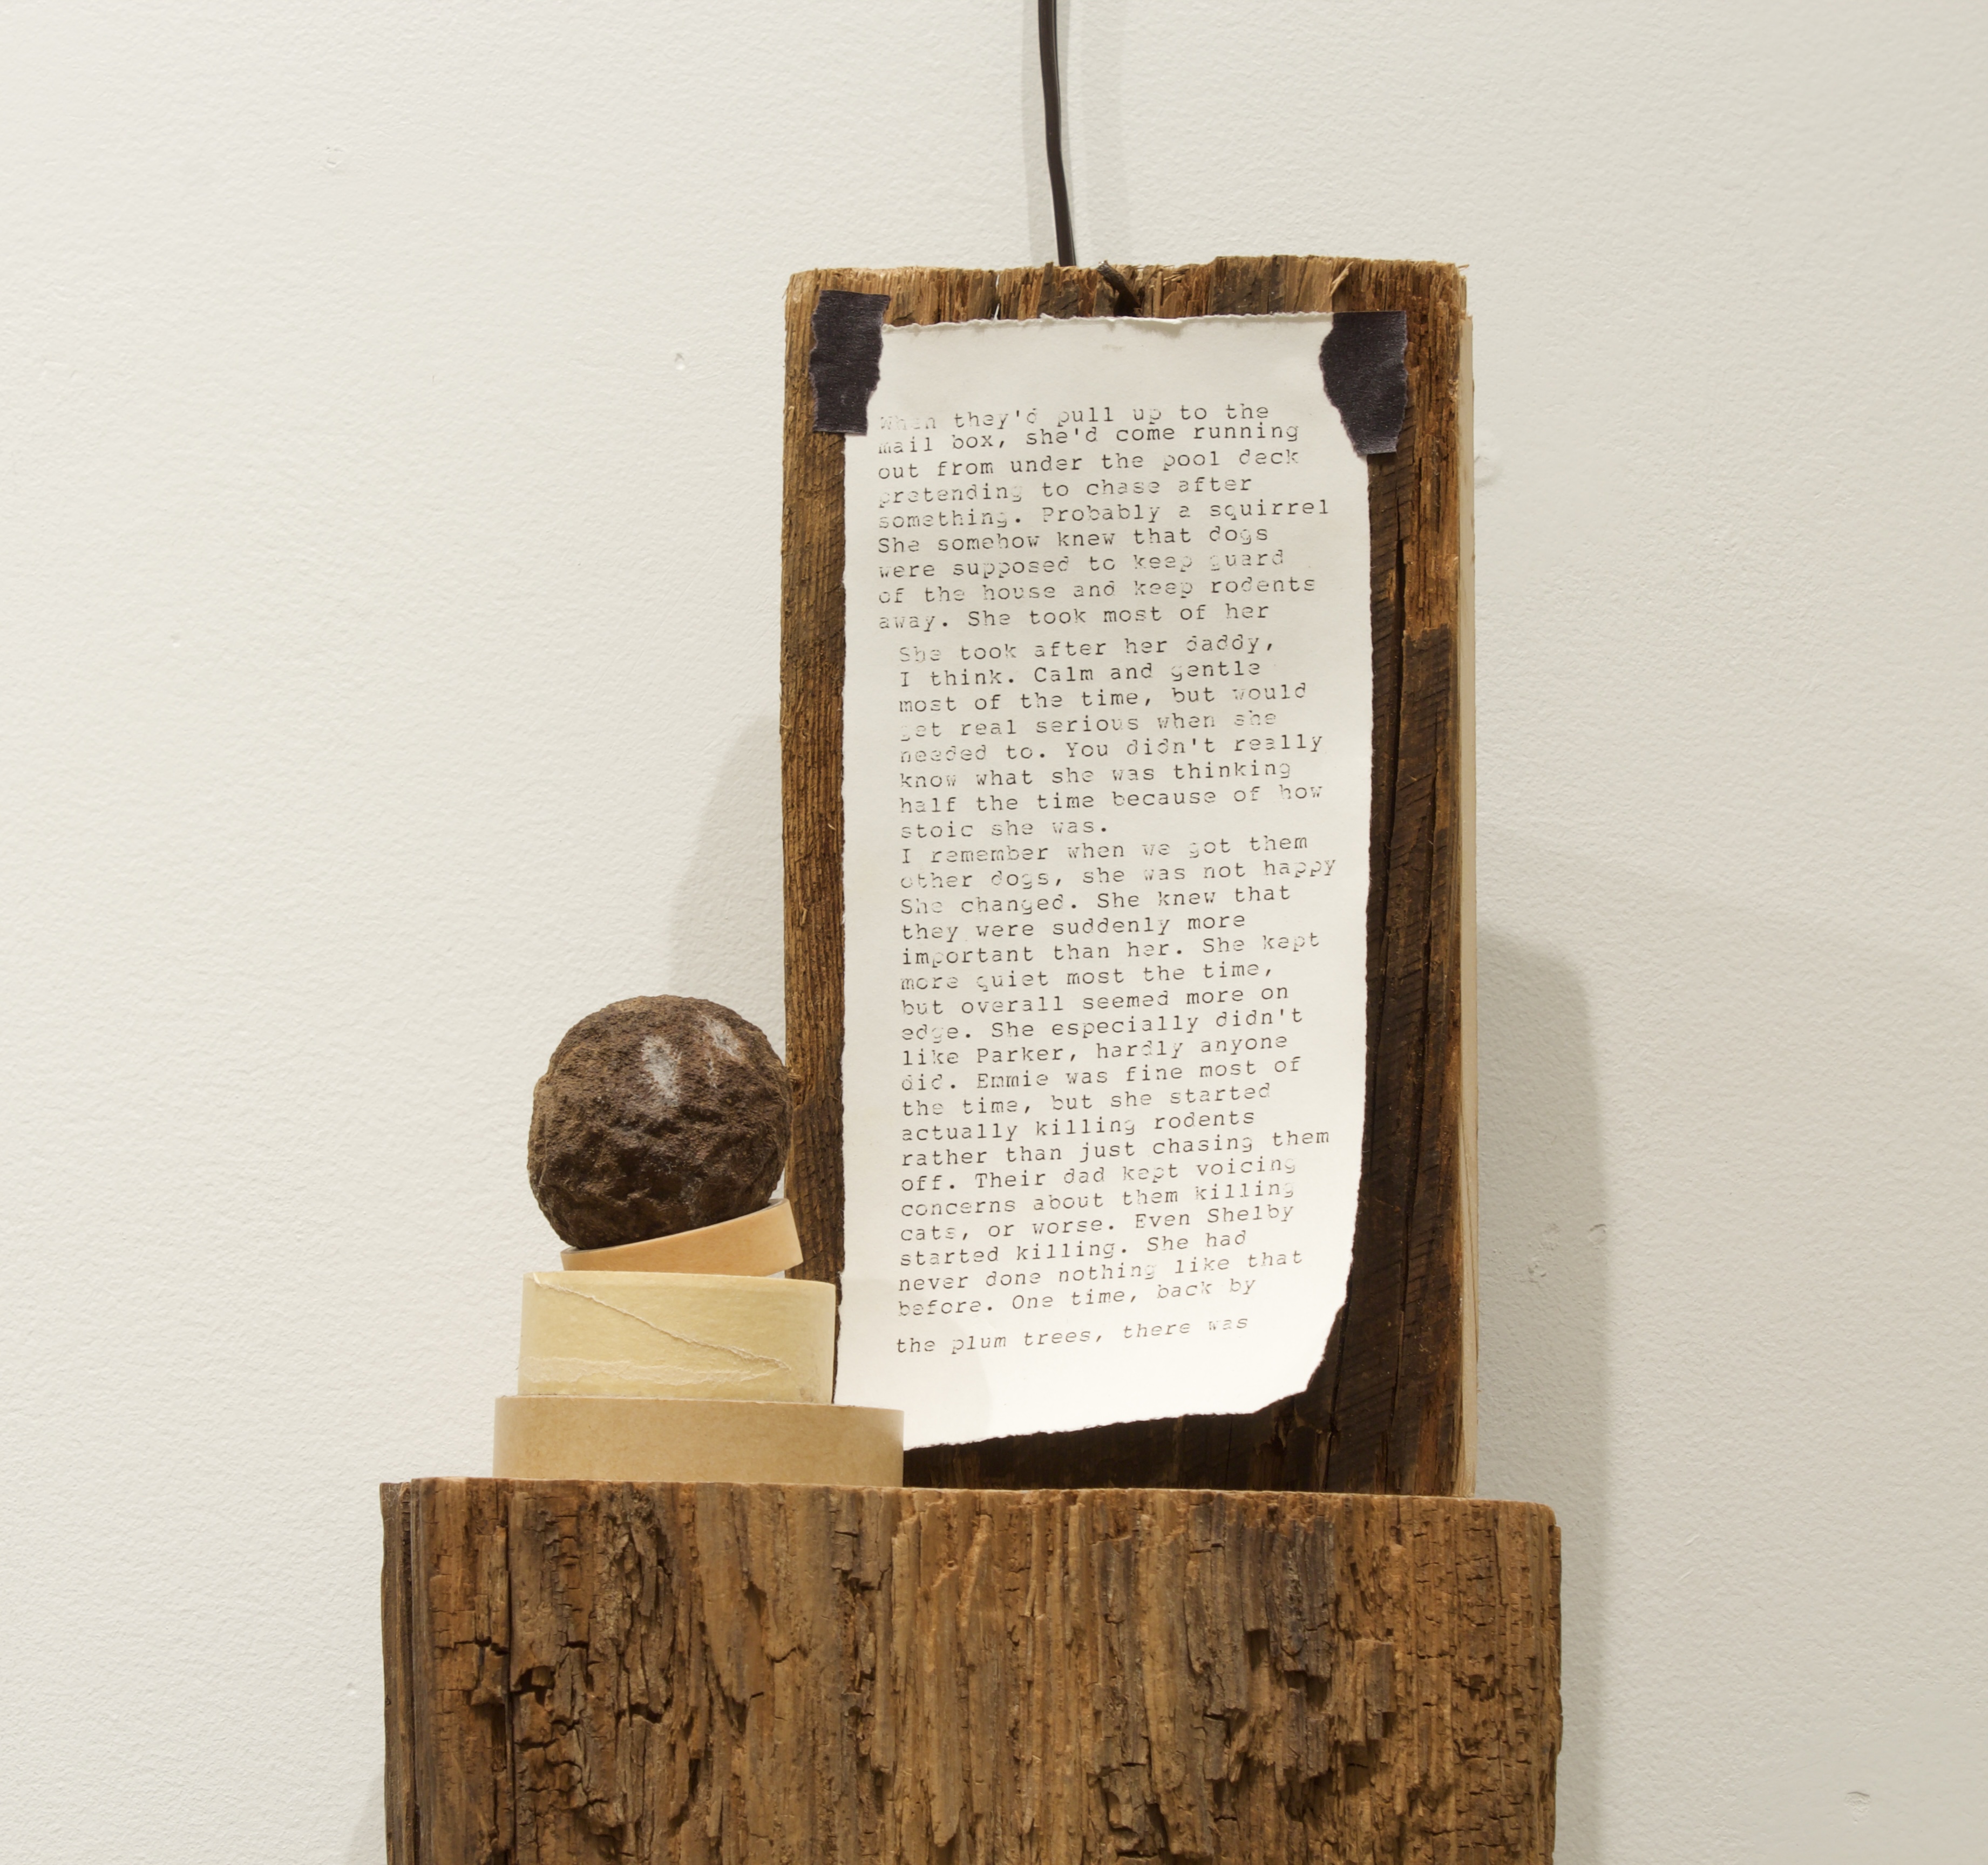 When they'd pull up to the
mail box, she'd come running
out from under the pool deck
pretending to chase after
something. Probably a squirrel
She somehow knew that dogs
were supposed to keep guard
of the house and keep rodents
away. She took most of her
She took after her daddy,
I think. Calm and gentle
most of the time, but would
get real serious when she
needed to. You didn't really
know what she was thinking
half the time because of how
stoic she was.
I remember when we got them
other dogs, she was not happy
She changed. She knew that
they were suddenly more
important than her. She kept
more quiet most the time,
but overall seemed more on
edge. She especially didn't
like Parker, hardly anyone
did. Emmie was fine most of
the time, but she started
actually killing rodents
rather than just chasing them
off. Their dad kept voicing
concerns about them killing
cats, or worse. Even Shelby
started killing. She had
never done nothing like that
before. One time, back by
the plum trees, there was